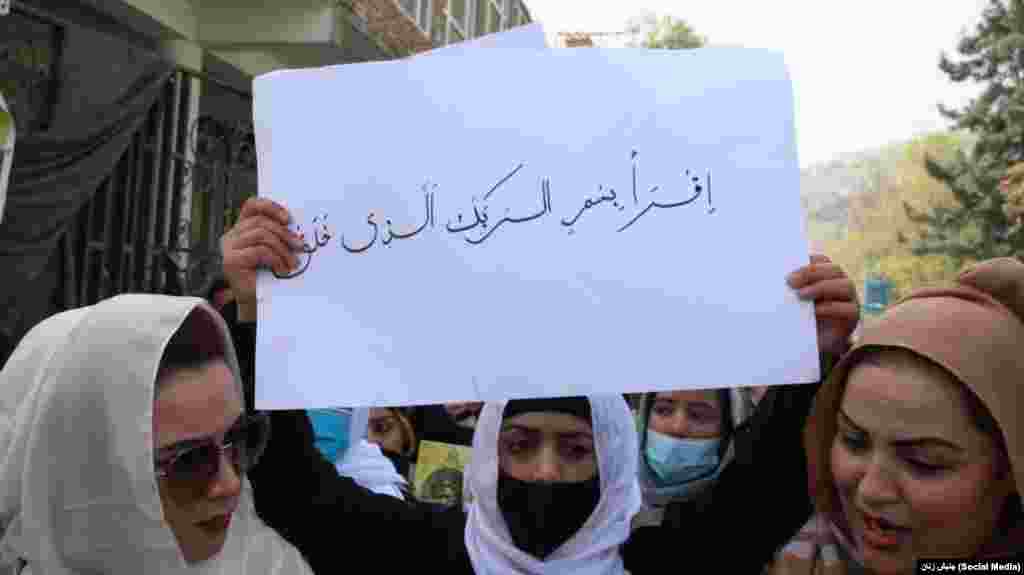 إقرأ بسم الربك الذی خلق
جنبش زنان (Social Media)